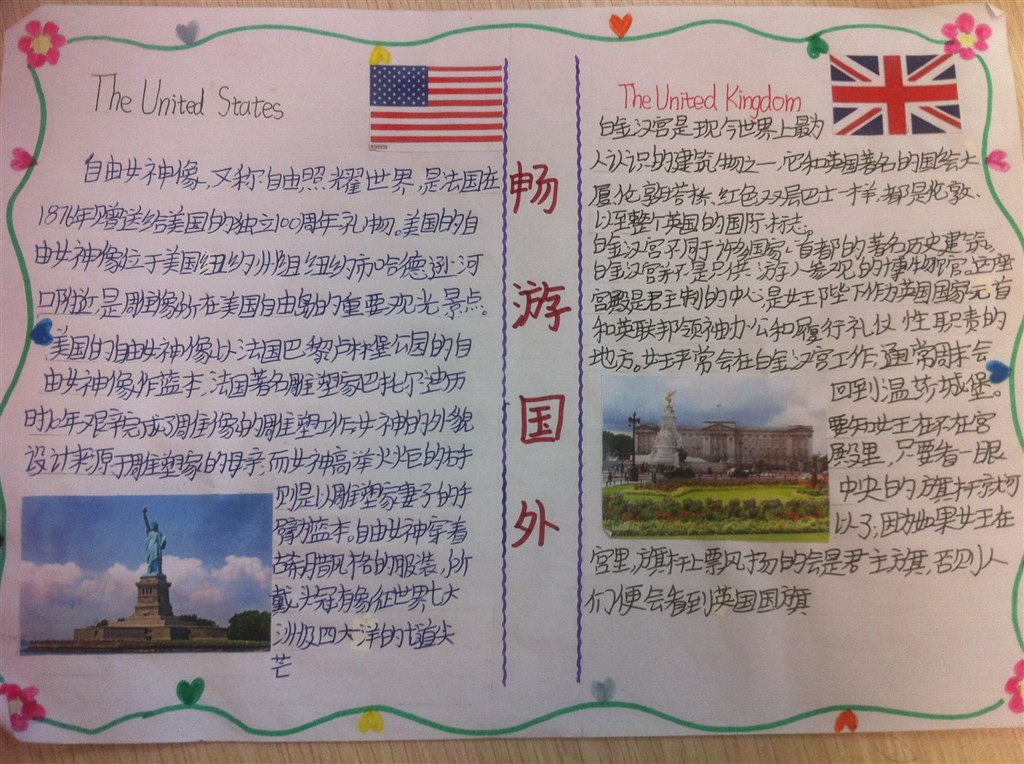 The United States
自由女神像,又称自由照耀世界,是法国在
1876年赠送给美国的独立100周年礼物。美国的自
由女神像位于美国纽约州纽约市哈德逊河
口附近,是雕像所在美国自由岛的重要观光景点。
美国的自由女神像以法国巴黎卢森堡公园的自
由女神像作蓝本,法国著名雕塑家巴托尔迪历
时10年艰辛完成了雕像的雕塑工作,女神的外貌
设计来源于雕塑家的母亲,而女神高举火炬的右手
则是以雕塑家妻子的手
臂为蓝本。自由女神穿着
古希腊风格的服装,所
戴头冠有象征世界七大
洲及四大洋的七道尖
芒
畅游国外
The United Kingdom
白金汉宫是现今世界上最为
人认识的建筑物之一,它和英国著名的国会大
厦,伦敦塔桥,红色双层巴士一样,都是伦敦、
以至整个英国的国际标志。
白金汉宫不同于许多国家、首都的著名历史建筑。
白金汉宫并不是只供游人参观的博物馆,这座
宫殿是君主制的中心,是女王陛下作为英国国家元首
和英联邦领袖办公和履行礼仪性职责的
地方。女王平常会在白金汉宫工作,通常周末会
回到温莎城堡。
要知女王在不在宫
殿里,只要看一眼
中央的旗杆就可
以了;因为如果女王在
宫里,旗杆上飘风扬的会是君主旗,否则人
们便会看到英国国旗